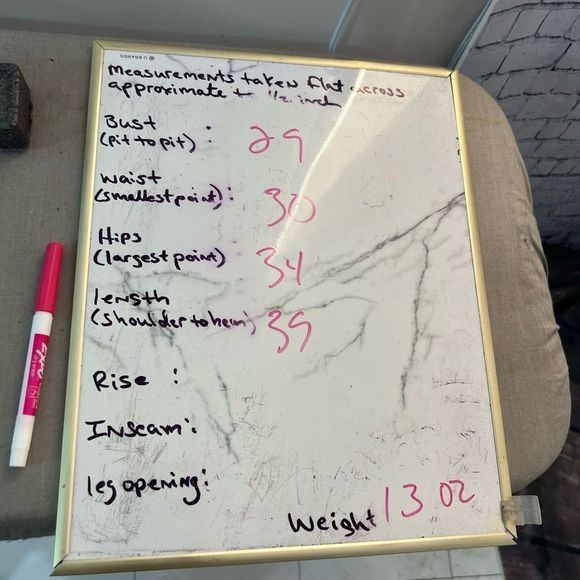 U BRANDS
measurements taken flat across
approximate + 1/2 inch
Bust :
(pit to pit) 29
Waist
(smallest point) : 30
Hips
(largest point) 34
length
(shoulder to hem) 39
Rise :
Inseam :
leg opening :
Weight 13 oz
EXPO